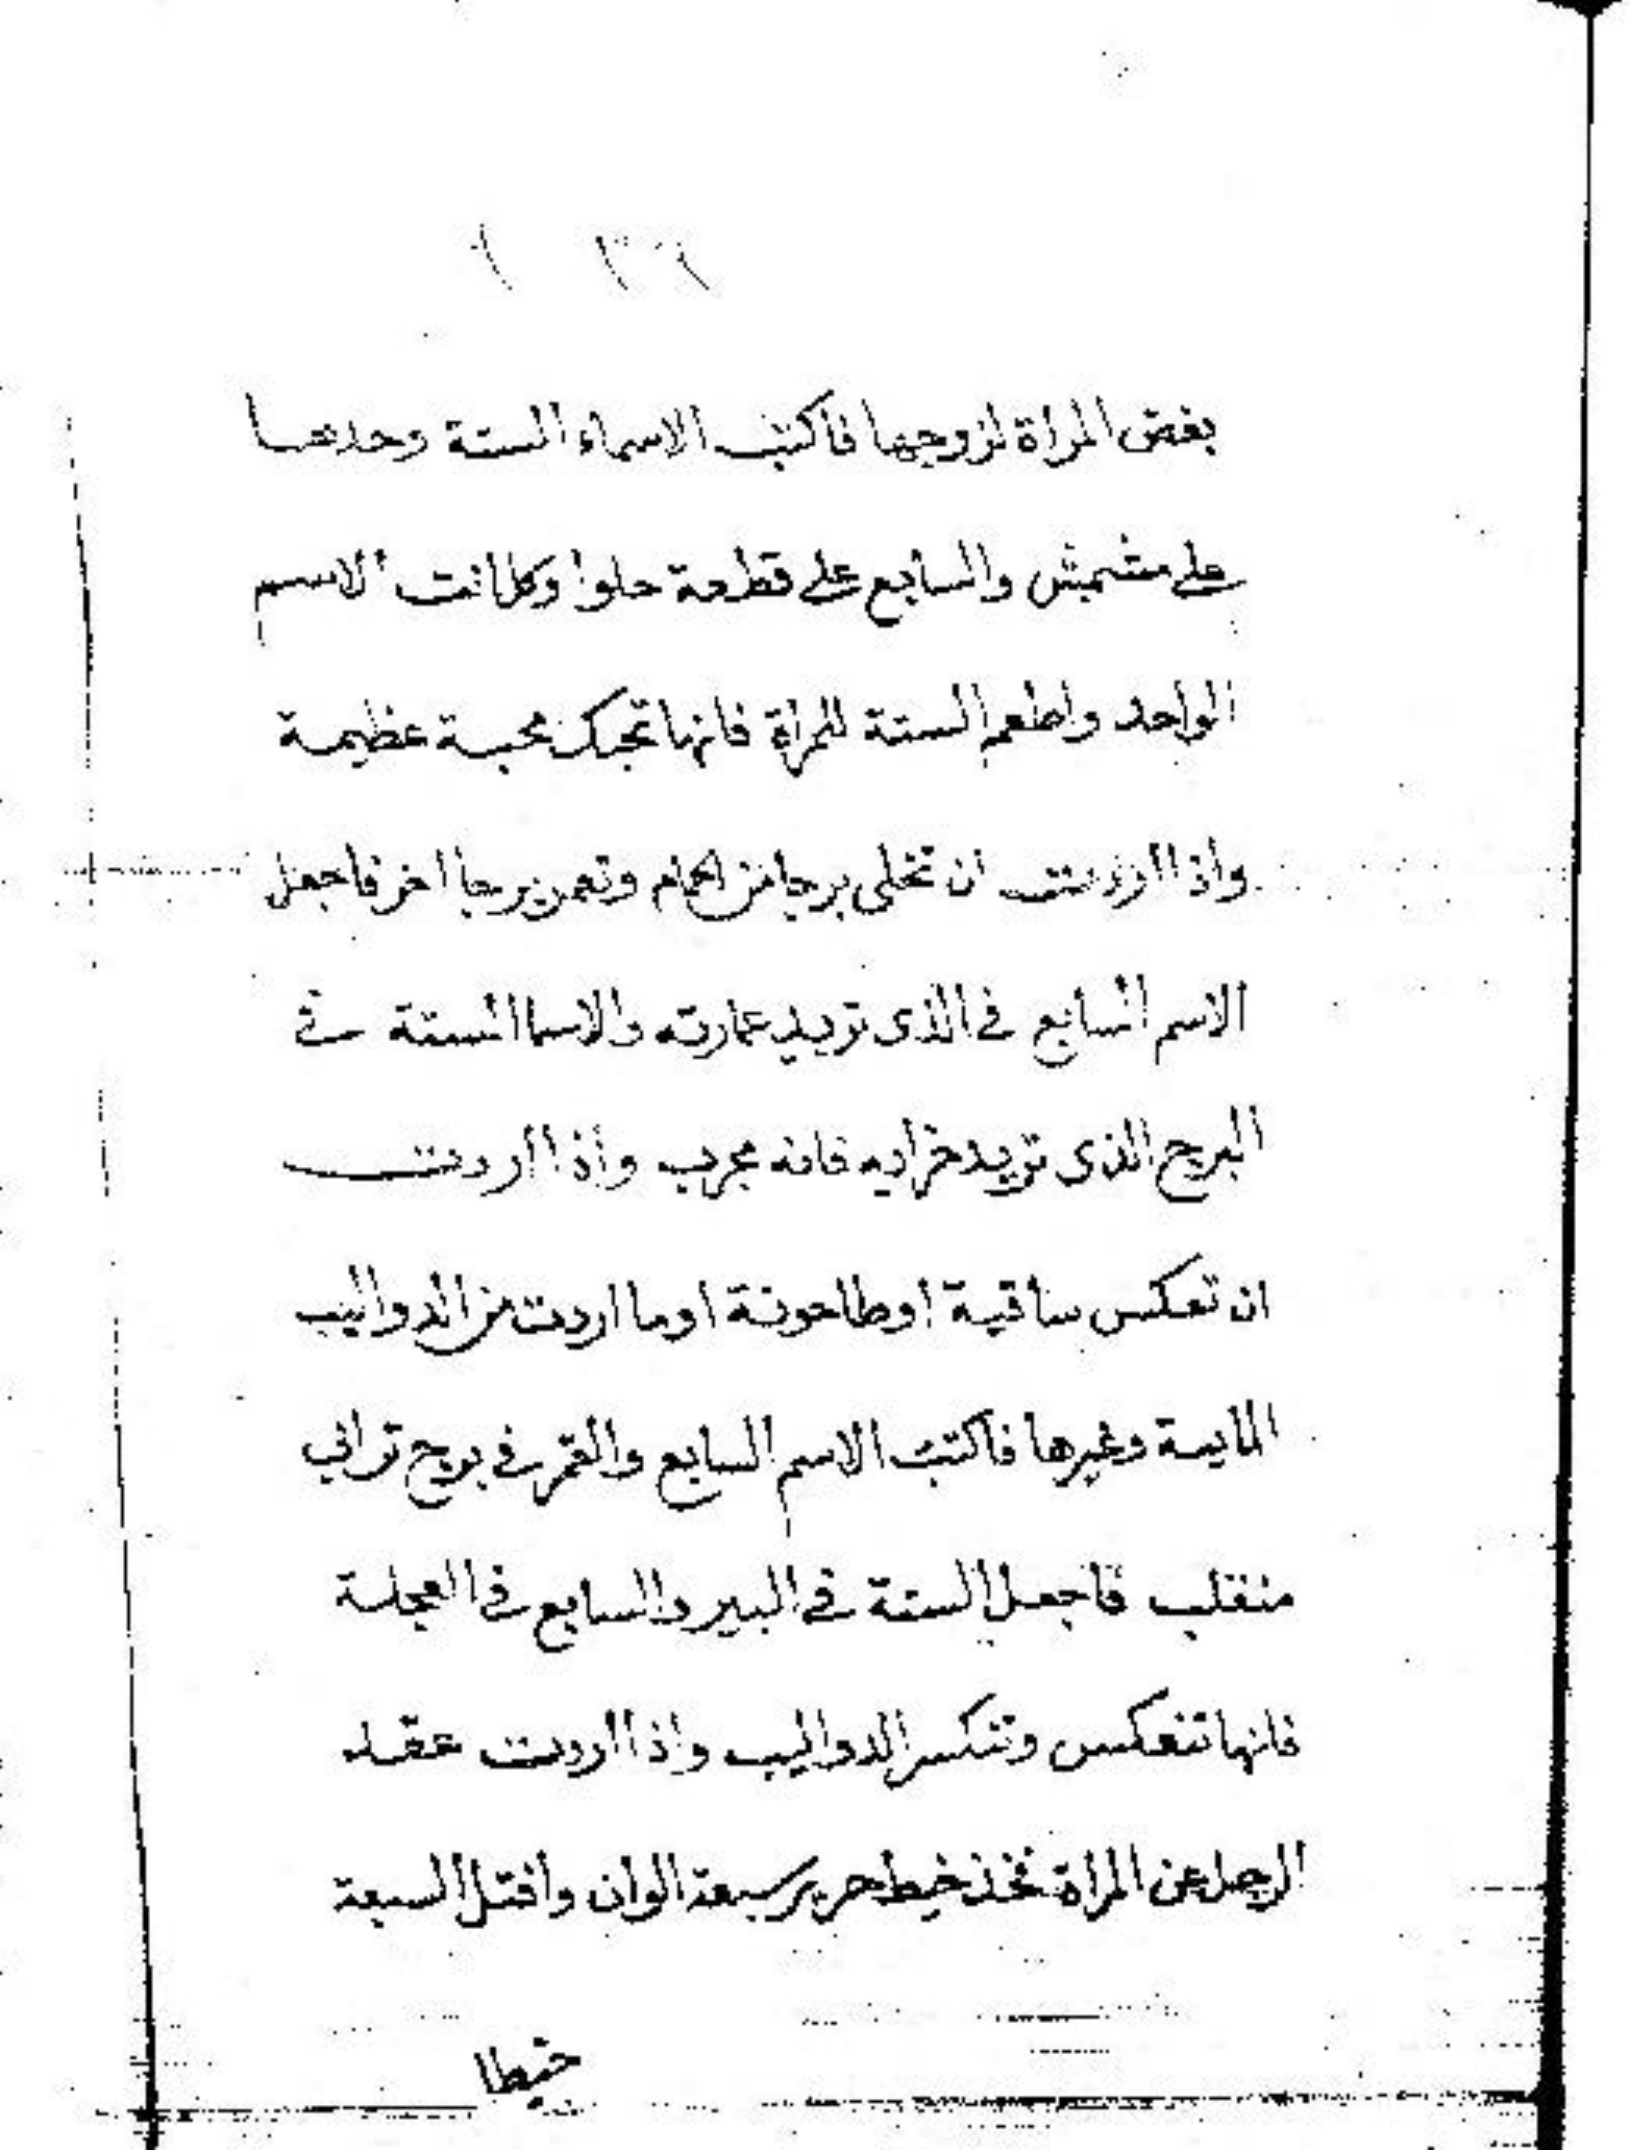 بغض المراة لزوجها فاكتب الاسماء الستة وحدها
على مشمش والسابع على قطعة حلوا وكل انت الاسم
الواحد واطعم الستة للمراة فانها تحبك محبة عظيمة
واذا اردت ان تخلى برجا من الحمام وتعمر برجا اخر فاجعل
الاسم السابع فى الذى تريد عمارته والاسما الستة فى
البرج الذى تريد خرابه فانه مجرب واذا اردت
ان تعكس ساقية او طاحونة او ما اردت من الدواليب
المايية وغيرها فاكتب الاسم السابع والقمر فى برج ترابي
منقلب فاجعل الستة فى البير والسابع فى العجلة
فانها تنعكس وتنكسر الدواليب واذا اردت عقد
الرجل عن المراة فخذ خيط حرير سبعة الوان وافتل السبعة
خيطا